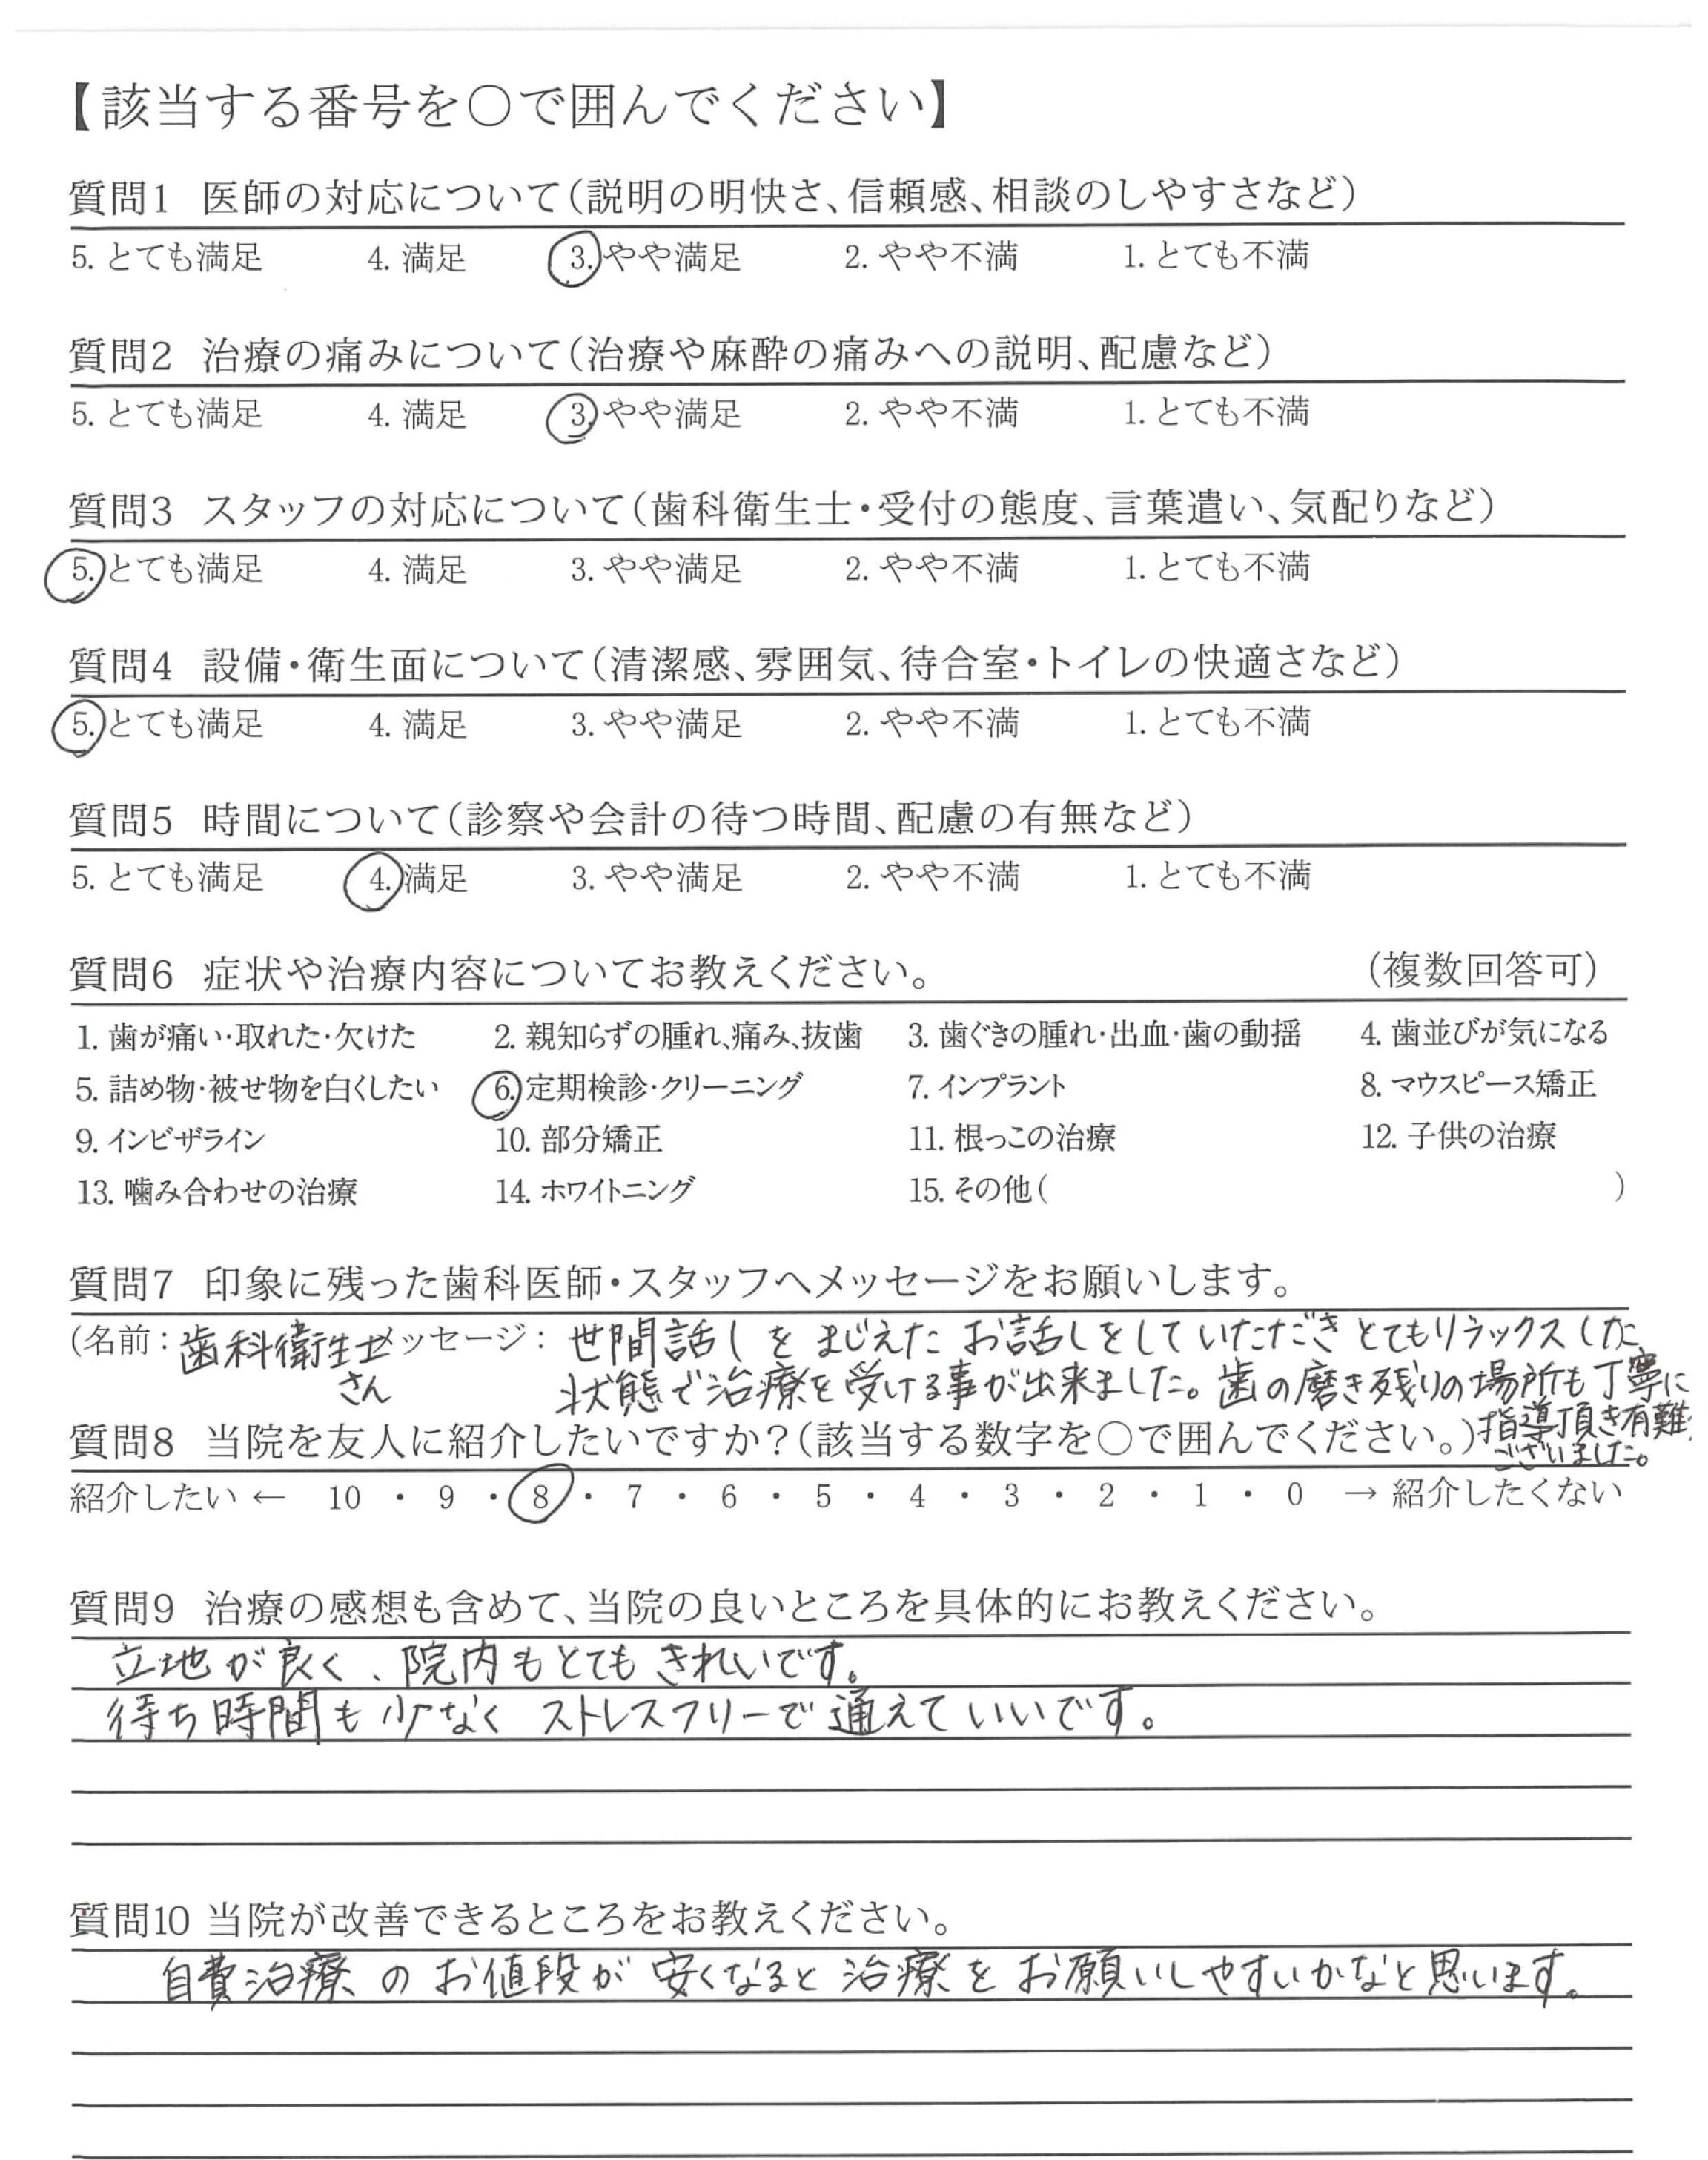 【該当する番号を〇で囲んでください】
質問1 医師の対応について(説明の明快さ、信頼感、相談のしやすさなど)
5. とても満足 4. 満足 3. やや満足 2. やや不満 1. とても不満
質問2 治療の痛みについて(治療や麻酔の痛みへの説明、配慮など)
5. とても満足 4. 満足 3. やや満足 2. やや不満 1. とても不満
質問3 スタッフの対応について(歯科衛生士・受付の態度、言葉遣い、気配りなど)
5. とても満足 4. 満足 3. やや満足 2. やや不満 1. とても不満
質問4 設備・衛生面について(清潔感、雰囲気、待合室・トイレの快適さなど)
5. とても満足 4. 満足 3. やや満足 2. やや不満 1. とても不満
質問5 時間について(診察や会計の待つ時間、配慮の有無など)
5. とても満足 4. 満足 3. やや満足 2. やや不満 1. とても不満
質問6 症状や治療内容についてお教えください。 (複数回答可)
1. 歯が痛い・取れた・欠けた 2. 親知らずの腫れ、痛み、抜歯 3. 歯ぐきの腫れ・出血・歯の動揺 4. 歯並びが気になる
5. 詰め物・被せ物を白くしたい 6. 定期検診・クリーニング 7. インプラント 8. マウスピース矯正
9. インビザライン 10. 部分矯正 11. 根っこの治療 12. 子供の治療
13. 噛み合わせの治療 14. ホワイトニング 15. その他( )
質問7 印象に残った歯科医師・スタッフへメッセージをお願いします。
(名前: 歯科衛生士 メッセージ: 世間話しをまじえたお話しをしていただきとてもリラックスした
さん 状態で治療を受ける事が出来ました。歯の磨き残りの場所も丁寧に
指導頂き有難
ございました。
質問8 当院を友人に紹介したいですか?(該当する数字を〇で囲んでください。)
紹介したい ← 10 ・ 9 ・ 8 ・ 7 ・ 6 ・ 5 ・ 4 ・ 3 ・ 2 ・ 1 ・ 0 → 紹介したくない
質問9 治療の感想も含めて、当院の良いところを具体的にお教えください。
立地が良く、院内もとてもきれいです。
待ち時間も少なくストレスフリーで通えていいです。
質問10 当院が改善できるところをお教えください。
自費治療のお値段が安くなると治療をお願いしやすいかなと思います。